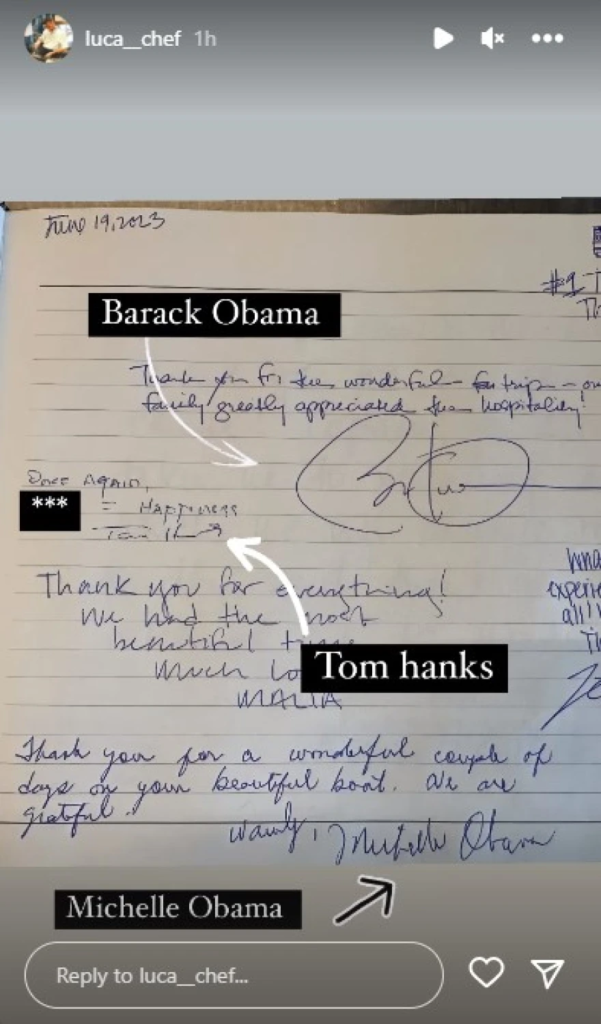 luca__chef 1h
June 19, 2023
#1 T
Th
Barack Obama
Thank you for the wonderful family trip - our
family greatly appreciated the hospitality!
Once Again,
***
= Happiness
Tom H
Thank you for everything!
We had the most
beautiful time
Much lo
MALIA
Wha
experie
all!!
Th
Tom hanks
Thank you for a wonderful couple of
days on your beautiful boat. We are
grateful.
Warmly, Michelle Obama
Michelle Obama
Reply to luca__chef...